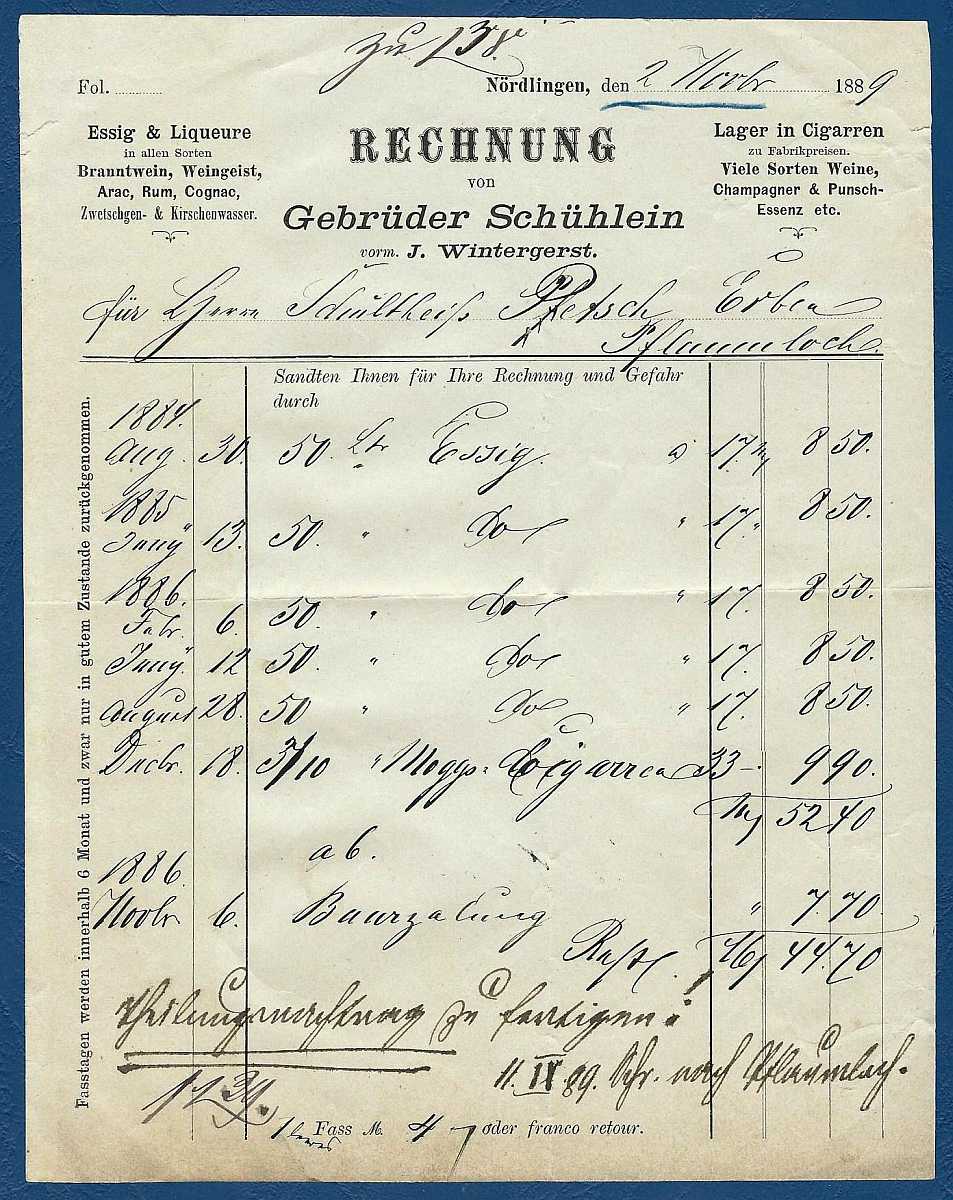 zu 138.
Fol.
Nördlingen, den 2 Novbr 1889
Essig & Liqueure
in allen Sorten
Branntwein, Weingeist,
Arac, Rum, Cognac,
Zwetschgen- & Kirschenwasser.
RECHNUNG
von
Gebrüder Schühlein
vorm. J. Wintergerst.
Lager in Cigarren
zu Fabrikpreisen.
Viele Sorten Weine,
Champagner & Punsch-
Essenz etc.
für Herrn Schultheiß Pfetsch Erben
Pflaumloch.
Sandten Ihnen für Ihre Rechnung und Gefahr
durch
Fasstagen werden innerhalb 6 Monat und zwar nur in gutem Zustande zurückgenommen.
1884.
Aug. 30. 50. Ltr Essig. à 17. 8 50.
1885
Juny 13. 50. " Do " 17. " 8 50.
1886.
Febr. 6. 50. " Do " 17. 8 50.
Juny. 12 50. " Do " 17. 8 50.
August 28. 50 " Do " 17. 8 50.
Decbr. 18. 3/10 " Cigarren 33 -. 9 90.
M 52 40
ab.
1886.
Novbr 6. Baarzalung " 7. 70.
Rest. M 44. 70
Theilungsnachtrag zu fertigen!
11. IX 89. Schr. nach Pflaumloch.
1 leeres Fass M. 4 oder franco retour.